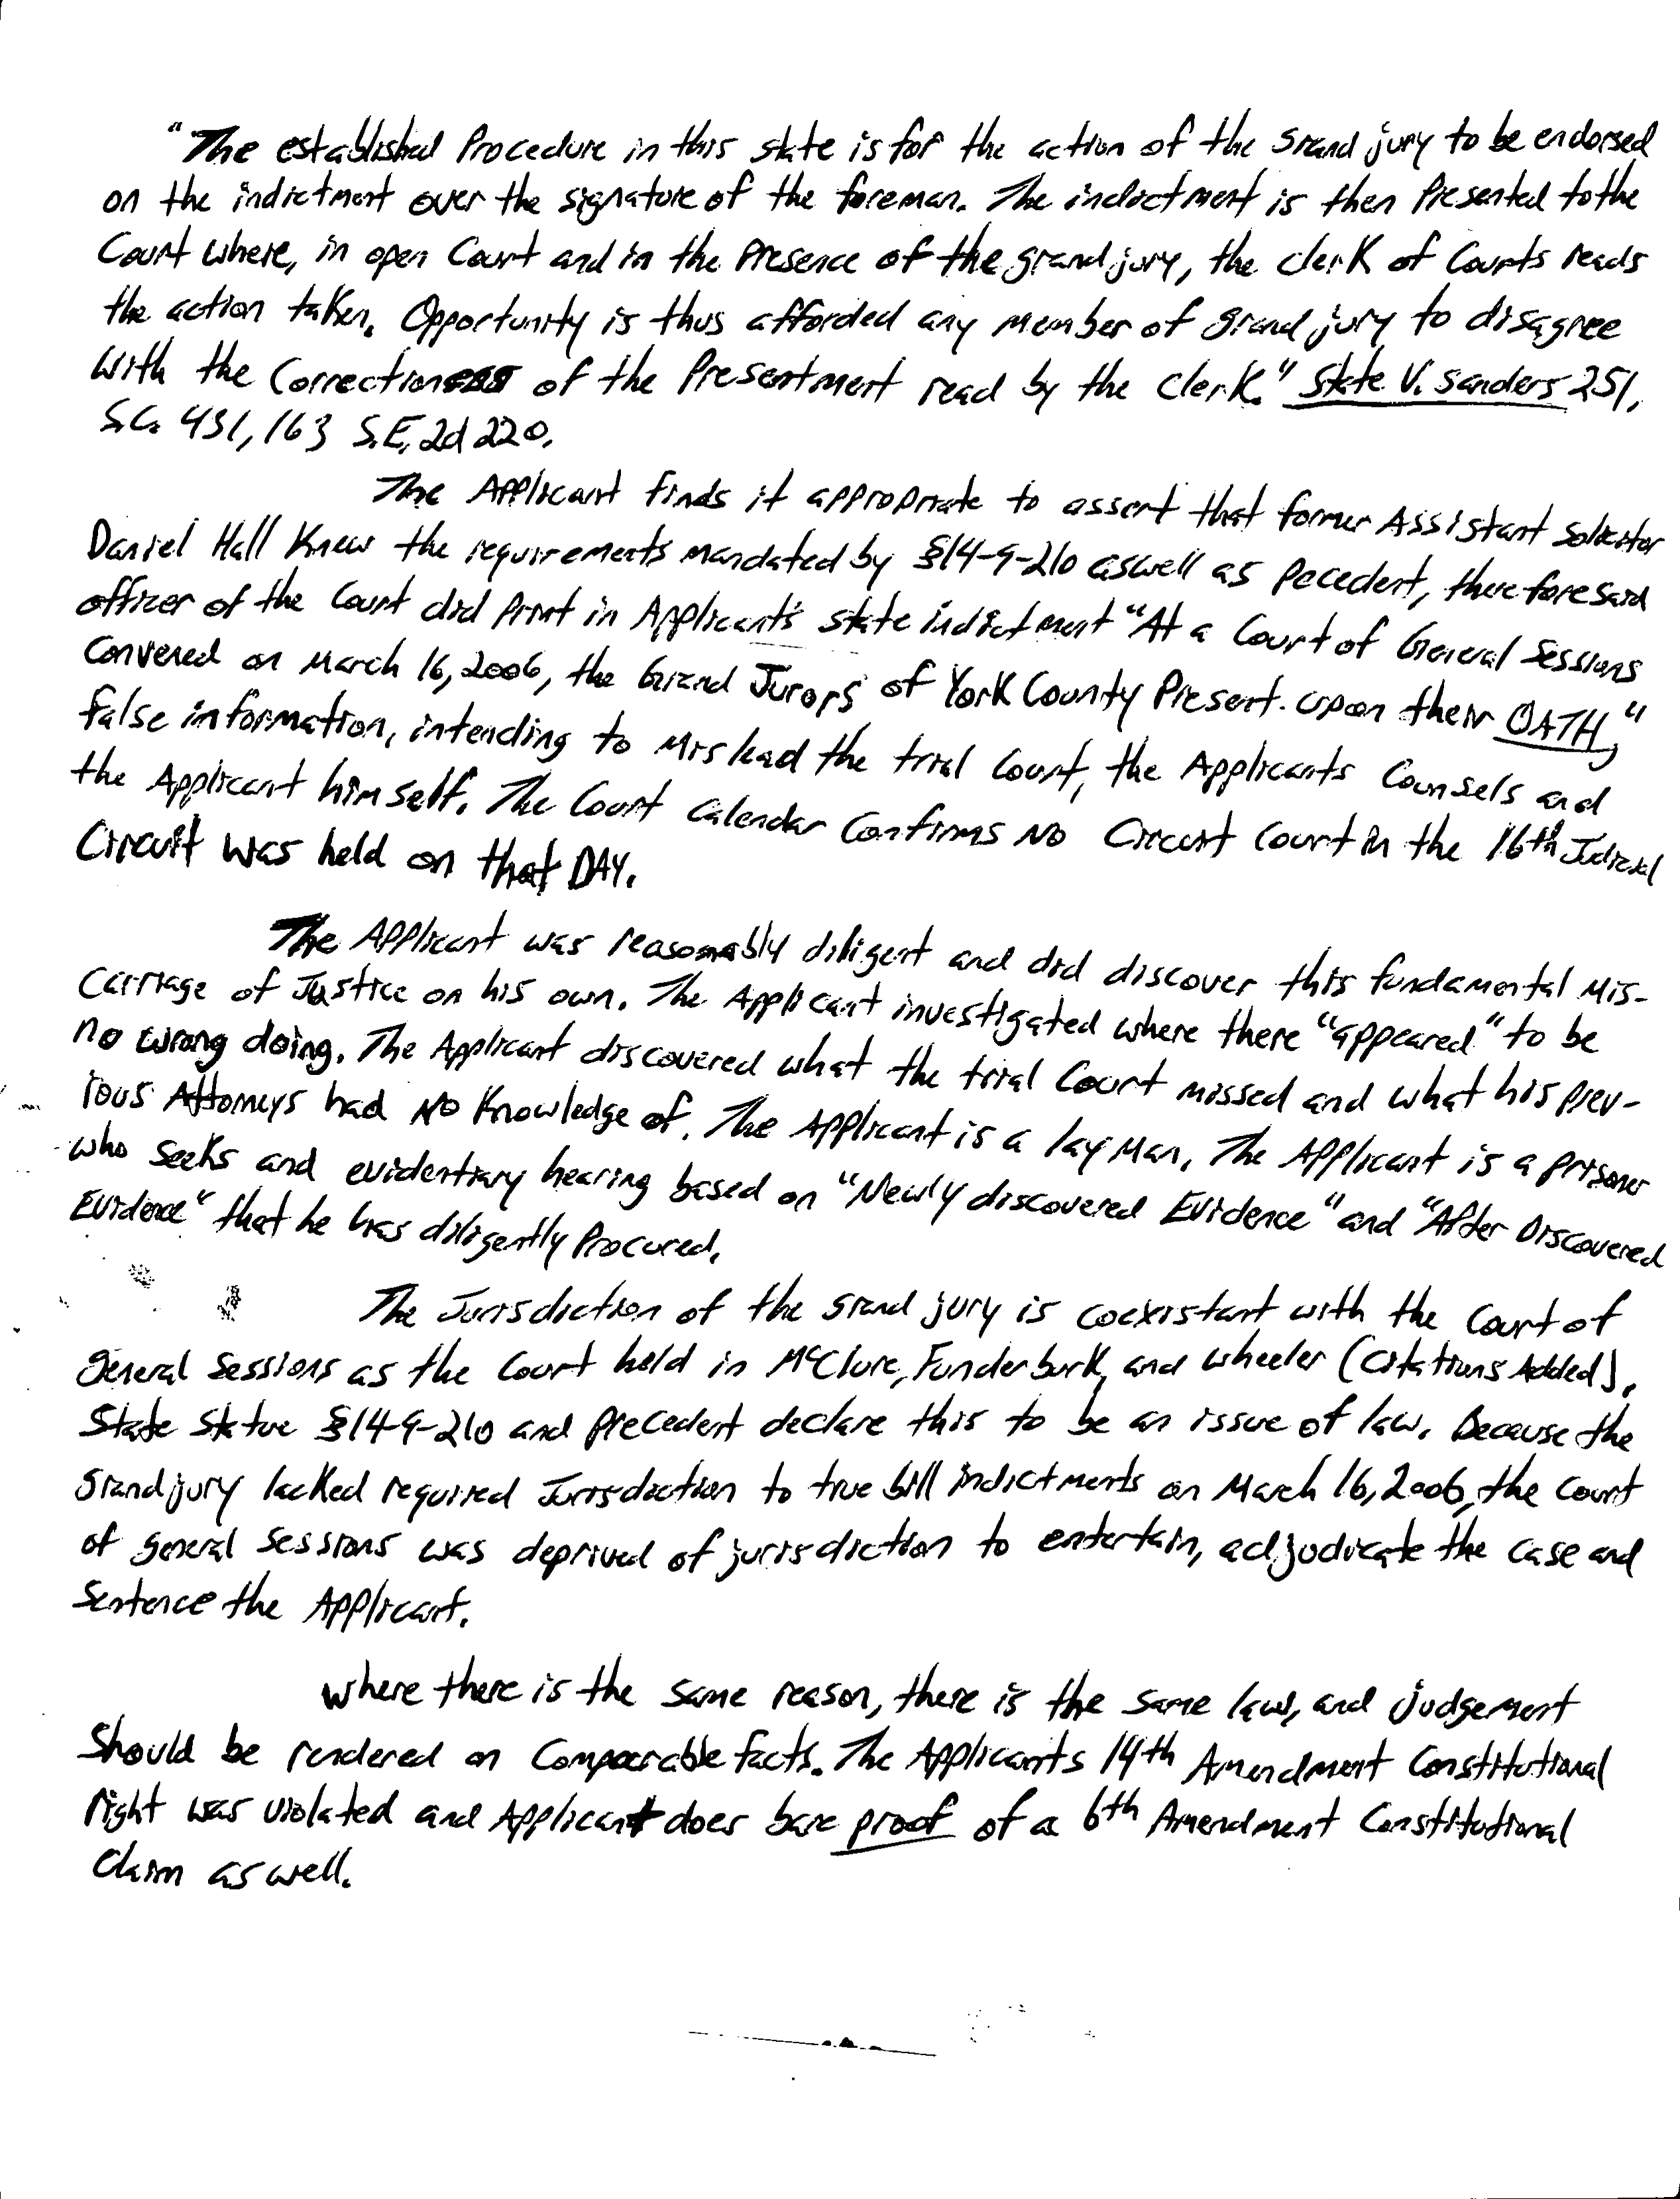 "The established Procedure in this state is for the action of the grand jury to be endorsed
on the indictment over the signature of the foreman. The indictment is then Presented to the
Court where, in open Court and in the Presence of the grand jury, the clerk of Courts reads
the action taken. Opportunity is thus afforded any member of grand jury to disagree
with the Correctioness of the Presentment read by the Clerk." State V. Sanders 251,
S.C. 431, 163 S.E. 2d 220.
The Applicant finds it appropriate to assert that former Assistant Solicitor
Daniel Hall Knew the requirements mandated by §14-9-210 aswell as Pecedent, therefore said
officer of the Court did Print in Applicant's state indictment "At a Court of General Sessions
Convened on March 16, 2006, the Grand Jurors of York County Present. upon their OATH,"
false information, intending to Mislead the trial Court, the Applicants Counsels and
the Applicant himself. The Court Calendar Confirms NO Circuit Court in the 16th Judicial
Circuit was held on that DAY.
The Applicant was reasonably diligent and did discover this fundamental Mis-
Carriage of Justice on his own. The Applicant investigated where there "appeared" to be
no wrong doing. The Applicant discovered what the trial Court missed and what his Prev-
ious Attorneys had NO Knowledge of. The Applicant is a lay Man. The Applicant is a prisoner
who seeks and evidentiary hearing based on "Newly discovered Evidence" and "After Discovered
Evidence" that he has diligently Procured.
The Jurisdiction of the grand jury is coexistant with the Court of
general Sessions as the Court held in McClure, Funderburk, and Wheeler (Citations Added).
State Statue §14-9-210 and Precedent declare this to be an issue of law. Because the
grand jury lacked required Jurisdiction to true bill indictments on March 16, 2006, the Court
of general Sessions was deprived of jurisdiction to entertain, adjudicate the case and
Sentence the Applicant.
Where there is the same reason, there is the same law, and judgement
Should be rendered on Comparable facts. The Applicants 14th Amendment Constitutional
right was violated and Applicant does bare proof of a 6th Amendment Constitutional
Claim as well.